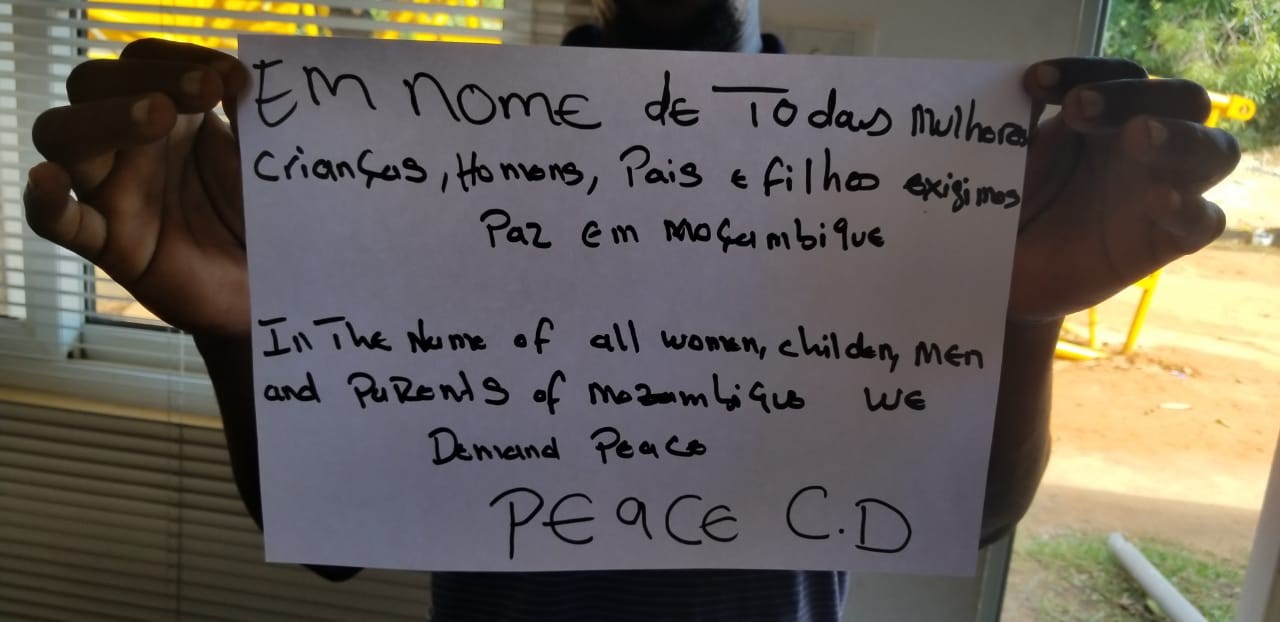 Em nome de Todas Mulheres
Crianças, Homens, Pais e filhos exigimos
Paz em Moçambique
In The Name of all women, childen, Men
and Parents of Mozambique we
Demand Peace
PEACE C.D